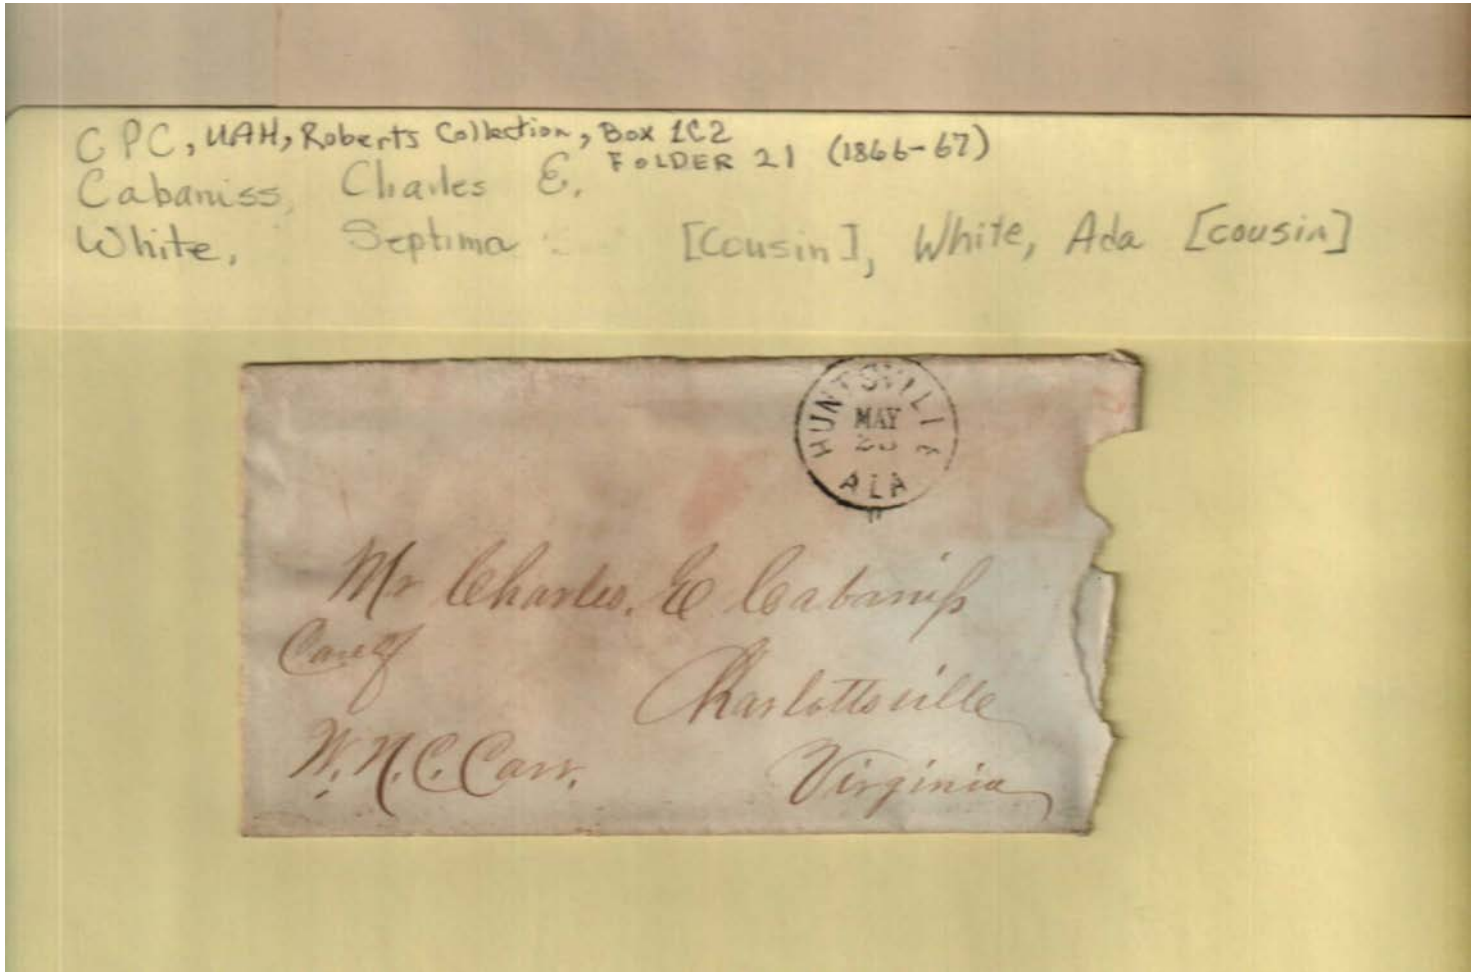 CPC, UAH, Roberts Collection, Box 1C2
FOLDER 21 (1866-67)
Cabaniss, Charles E.
White, Septima [Cousin], White, Ada [cousin]
HUNTSVILLE
MAY
ALA
Mr Charles. E Cabaniss
Care of
Charlottsville
W. N. C. Carr.
Virginia